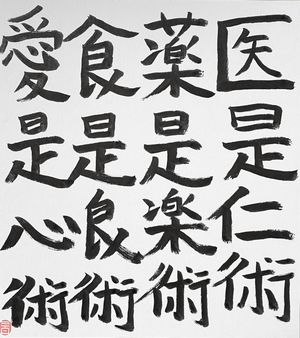 医是仁術
薬是楽術
食是良術
愛是心術